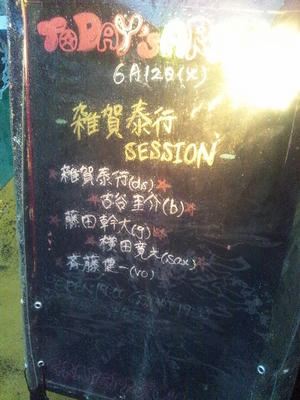 TODAY'S
6月12日(火)
雑賀泰行
SESSION
雑賀泰行(ds)
古谷圭介(b)
藤田幹大(g)
横田寛之(sax)
斉藤健一(vo)